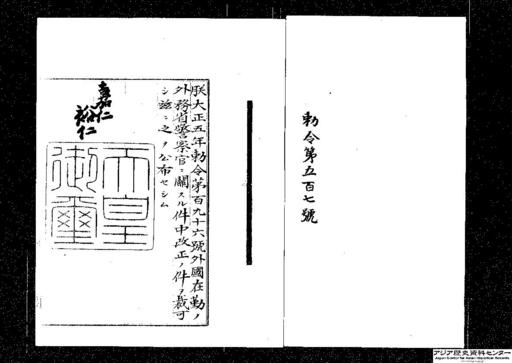 勅令第五百七號
朕大正五年勅令第百九十六號外國在勤ノ
外務省警察官ニ關スル件中改正ノ件ヲ裁可
シ茲ニ之ヲ公布セシム
嘉仁
裕仁
天皇
御璽
アジア歴史資料センター
Japan Center for Asian Historical Records